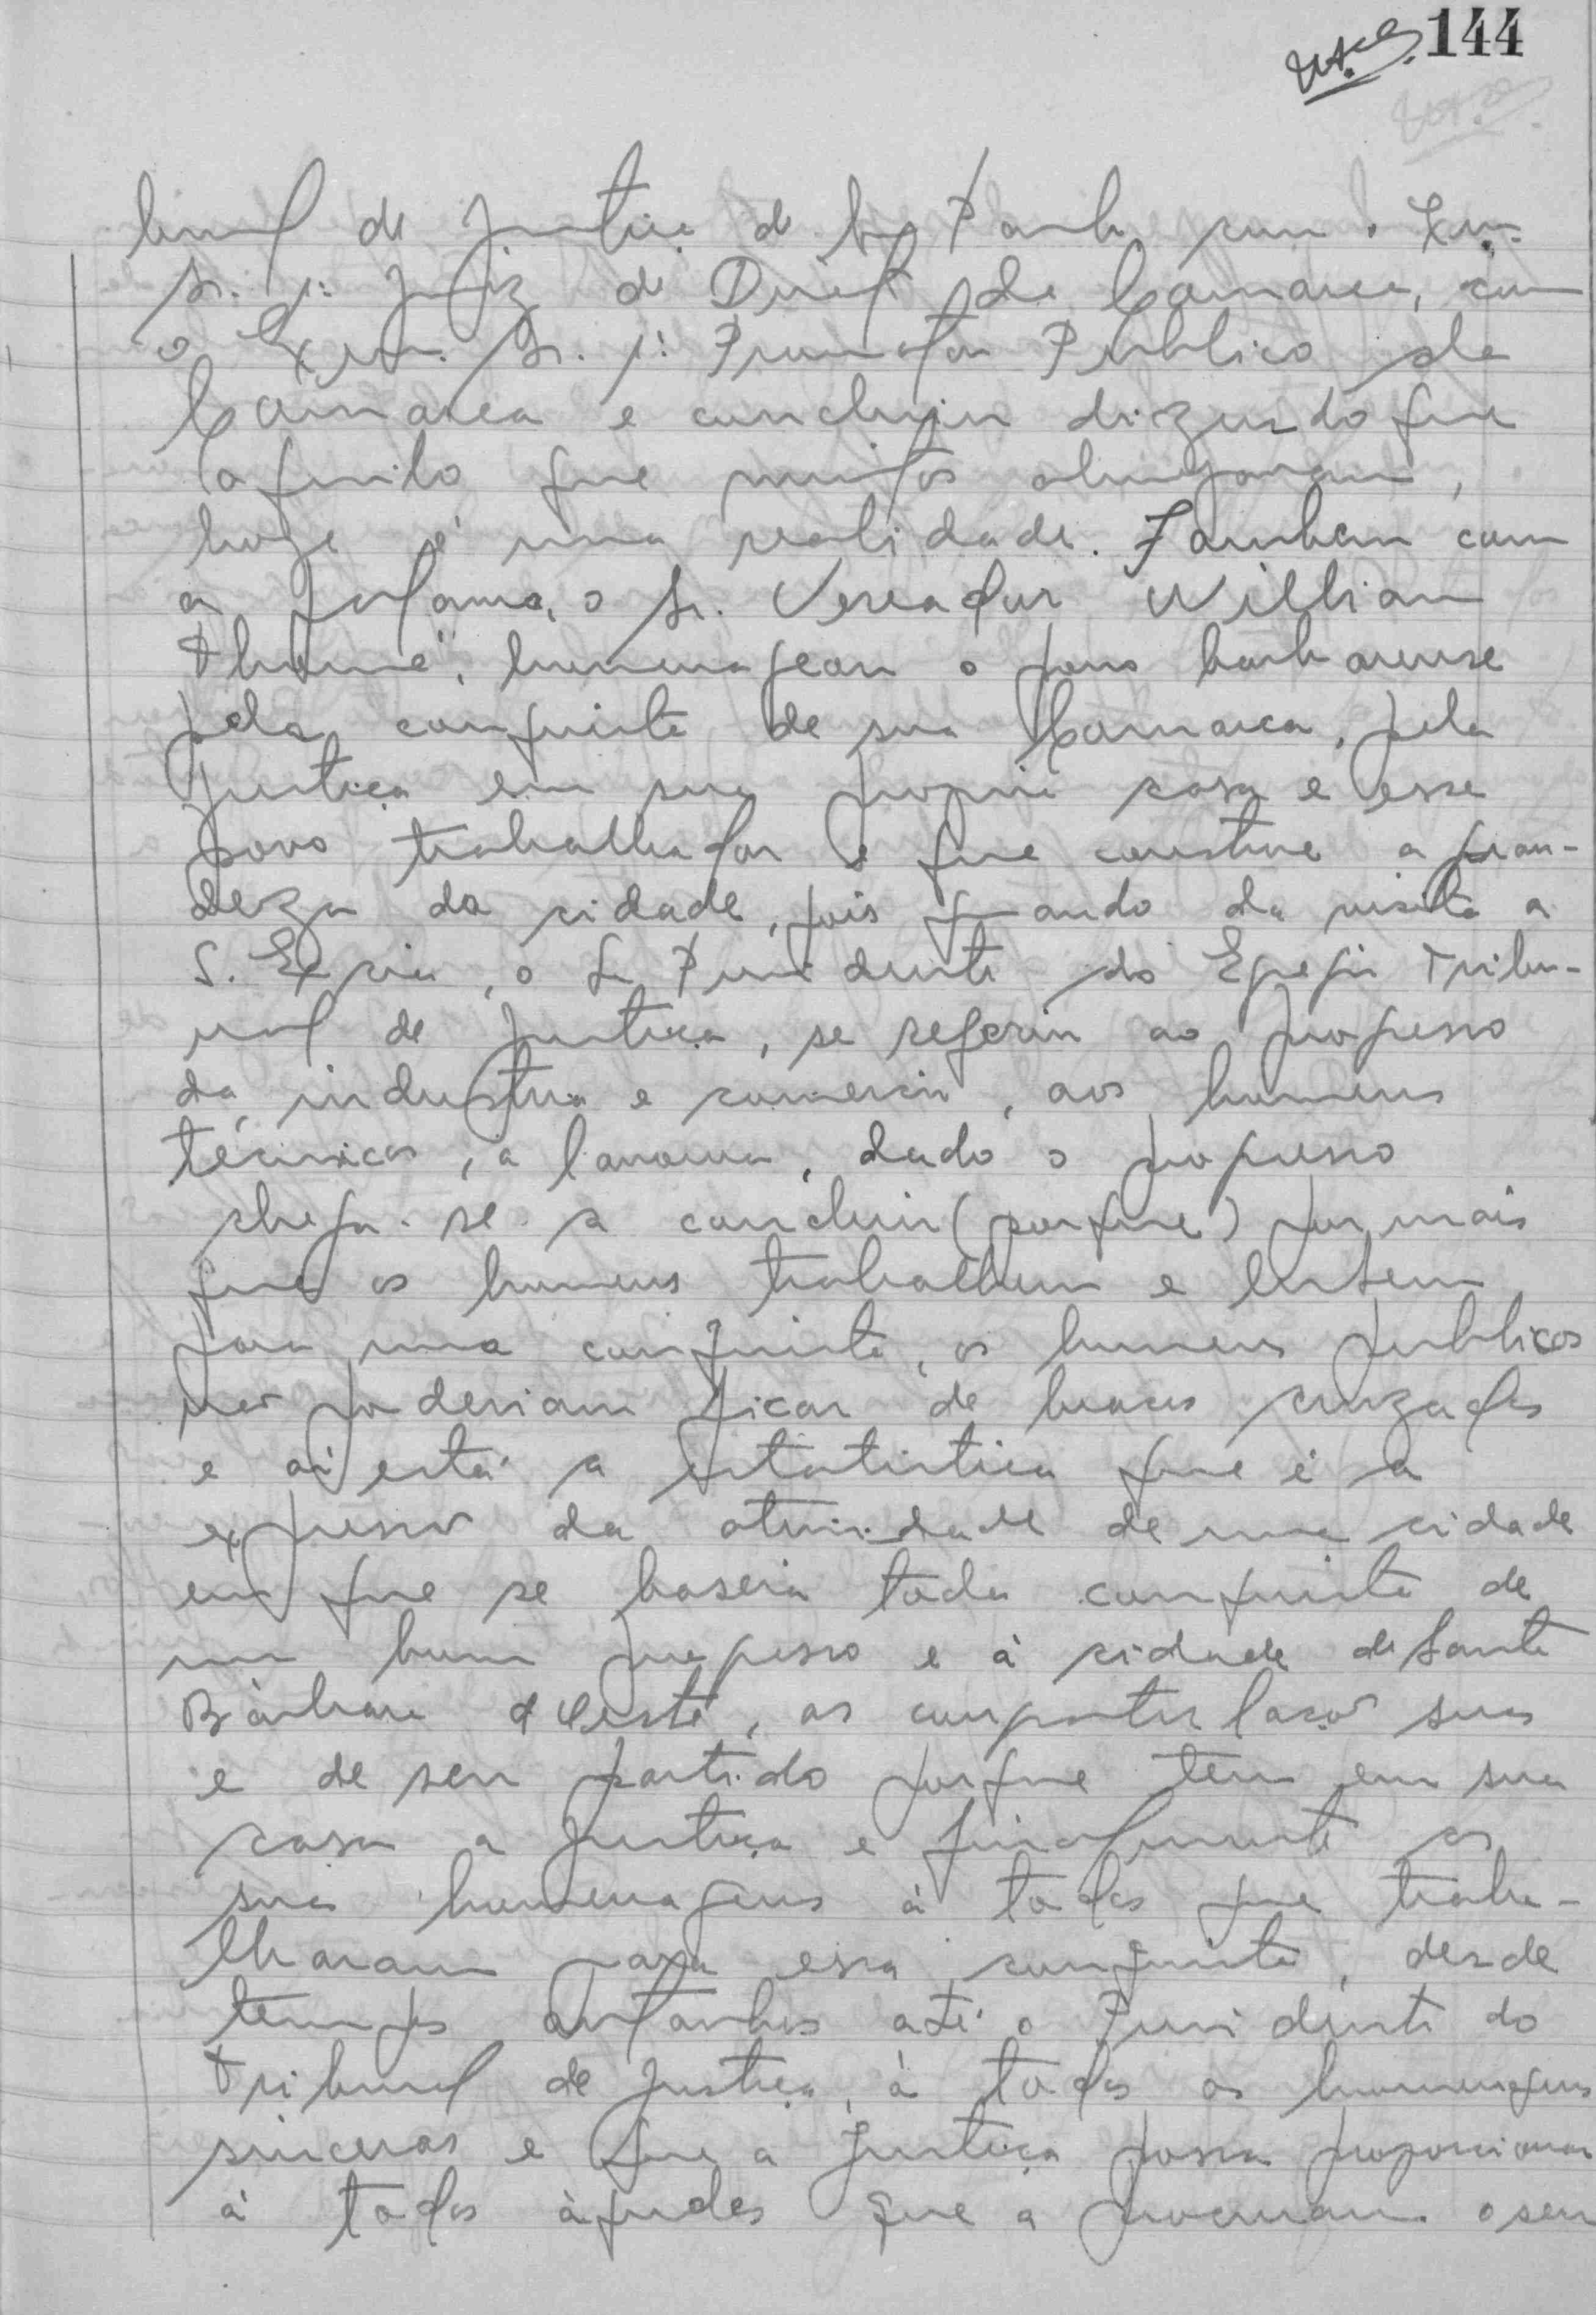 144
bunal de Justiça de São Paulo com o Exm.
Sr. 1º Juiz de Direito da Comarca, com
o Exmo. Sr. 1º Promotor Publico da
Comarca e concluiu dizendo que
aquilo que muitos almejaram,
hoje é uma realidade. Tambem com
a palavra, o Sr. Vereador Willian
Thomé, homenageou o povo barbarense
pela conquista de sua Comarca, pela
Justiça em sua propria casa e esse
povo trabalhador é que constroe a gran-
deza da cidade, pois quando da visita a
S. Excia, o Sr Presidente do Egregio Tribu-
nal de Justiça, se referiu ao progresso
da industria e comercio, aos homens
técnicos, a lavoura, dado o progresso
chega-se a concluir (porque) por mais
que os homens trabalhem e lutem
para uma conquista, os homens publicos
não poderiam ficar de braços cruzados
e ai está a estatistica que é a
expressão da atividade de uma cidade
em que se baseia toda conquista de
um bom progresso e à cidade de Santa
Bárbara d'Oeste, as congratulações suas
e de seu partido porque tem em sua
casa a Justiça e finalmente as
suas homenagens à todos que traba-
lharam para essa conquista, desde
tempos antanhos até o Presidente do
Tribunal de Justiça, à todos as homenagens
sinceras e que a Justiça possa proporcionar
à todos àqueles que a procuram o seu